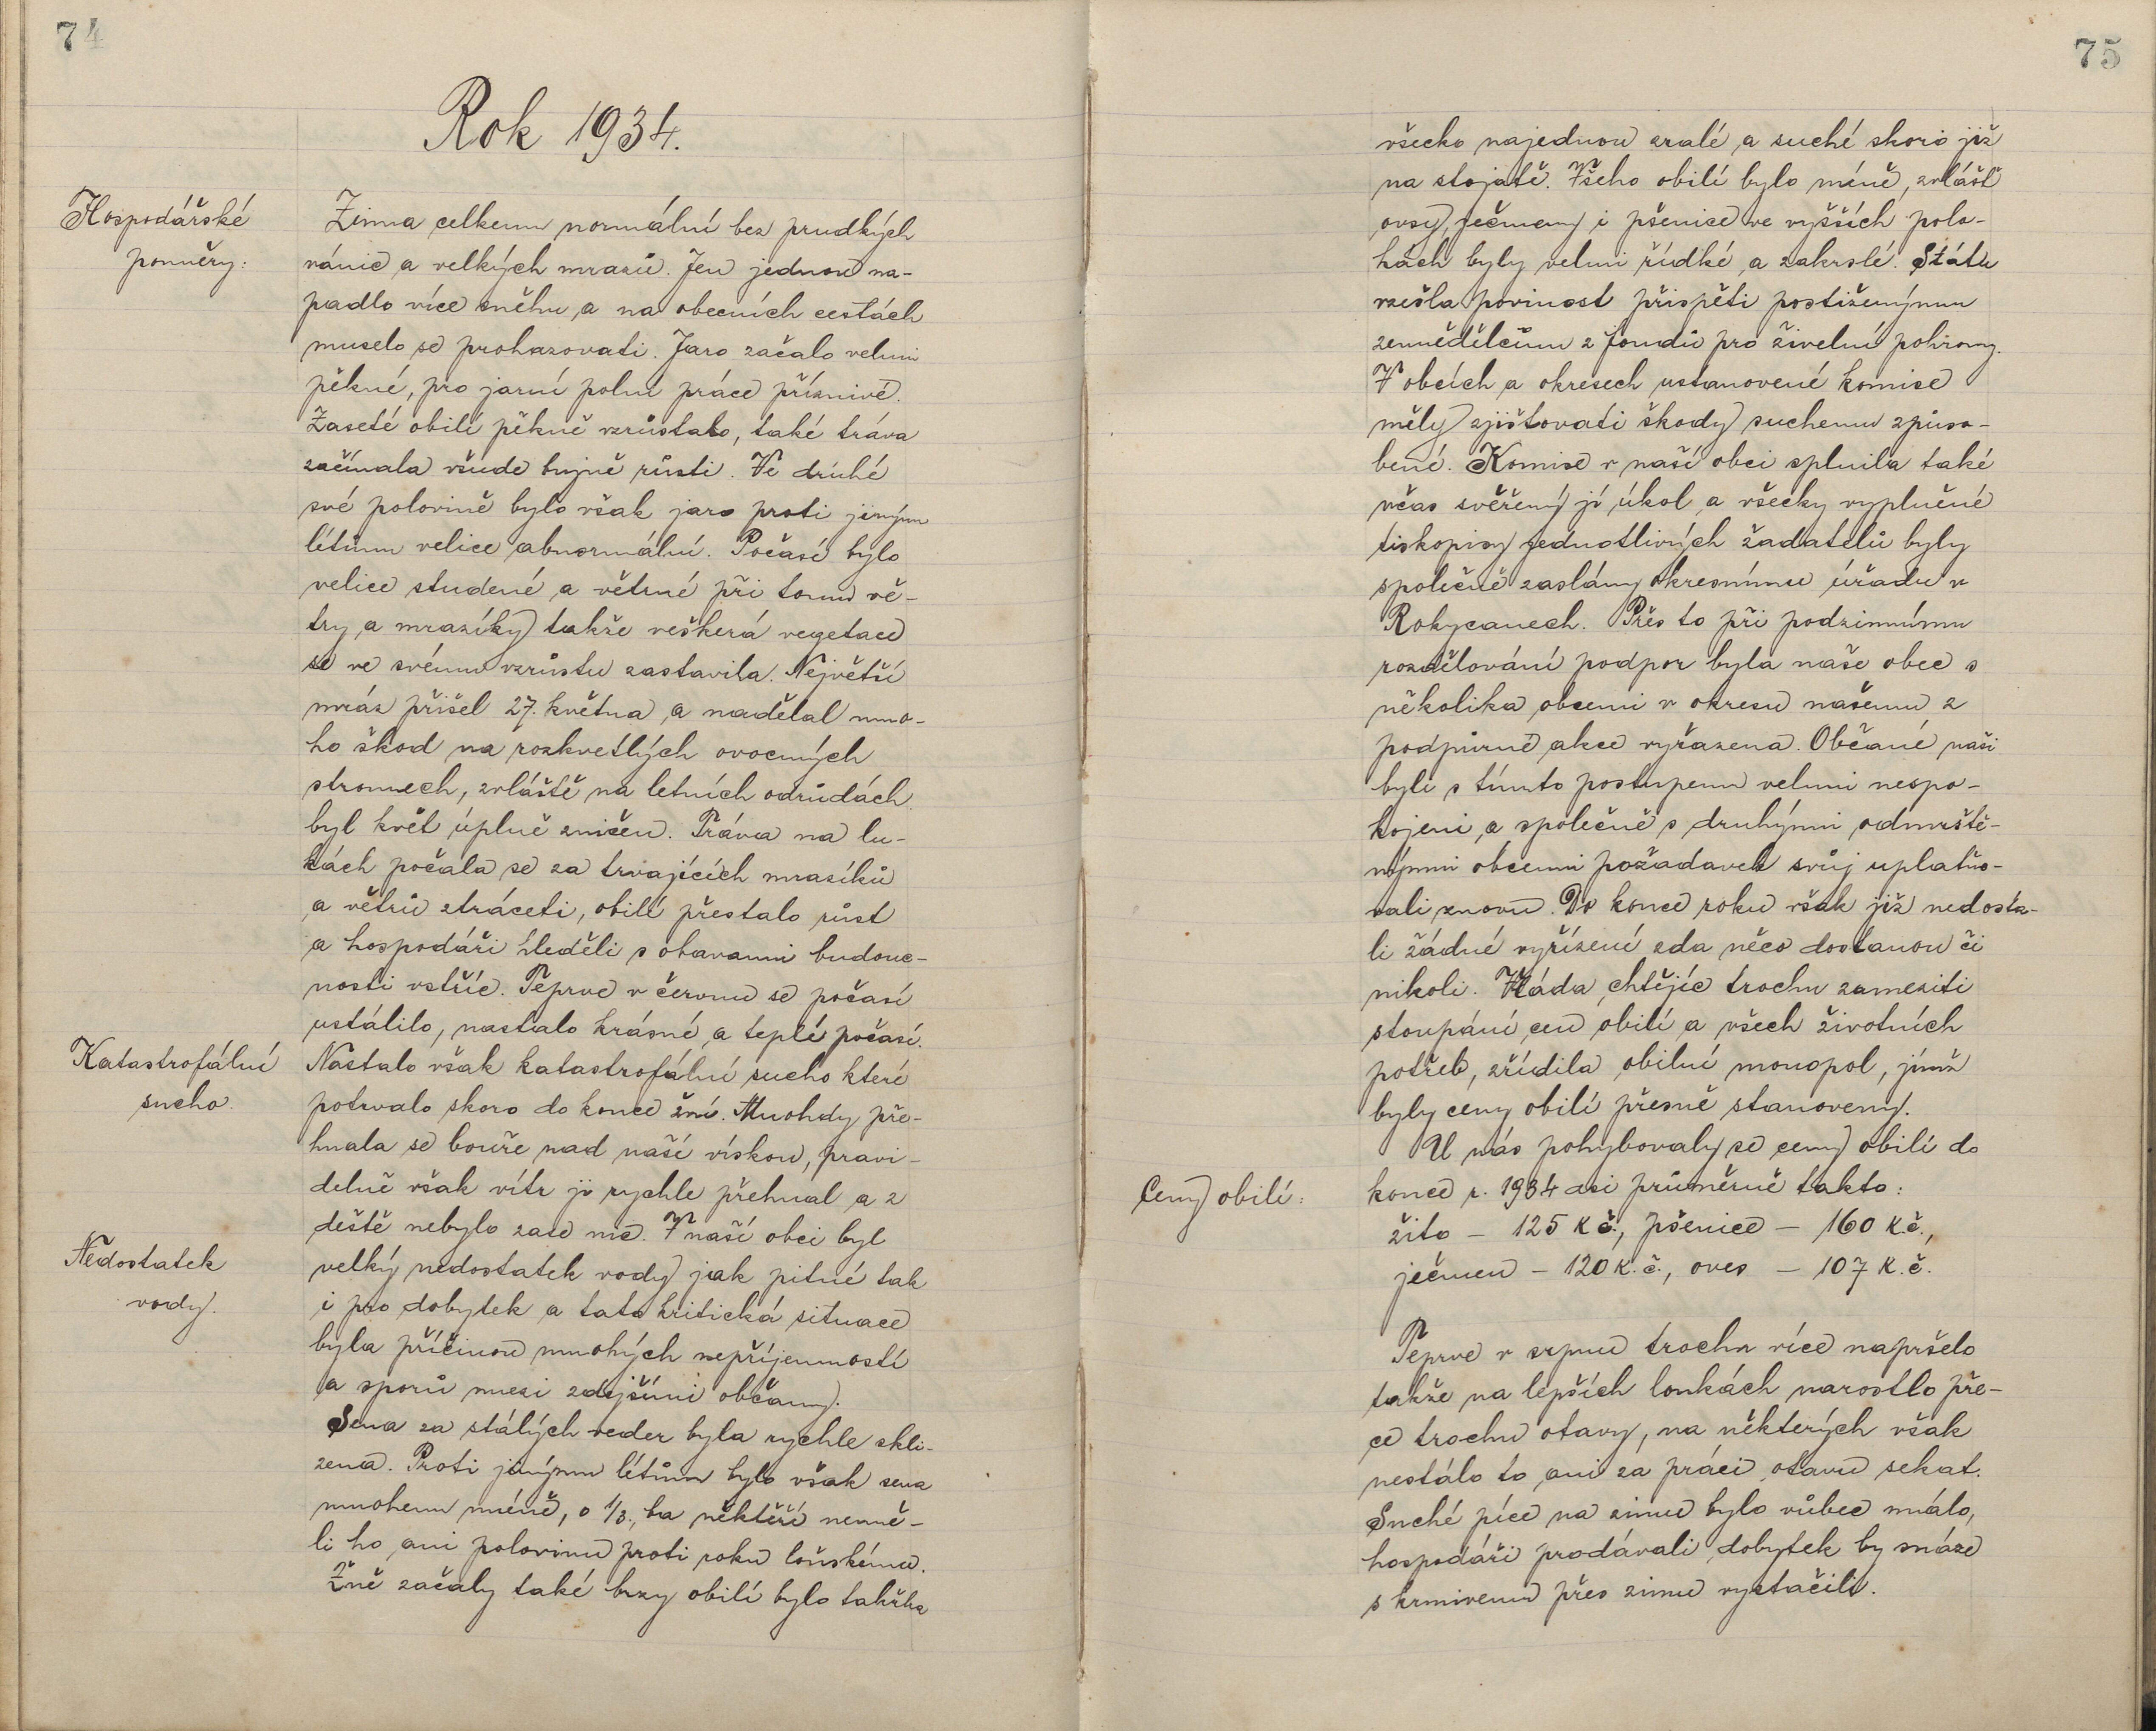 74
Rok 1934.
Hospodářské
poměry:
Zima celkem normální bez prudkých
vánic a velkých mrazů. Jen jednou na-
padlo více sněhu a na obecních cestách
muselo se prohazovati. Jaro začalo velmi
pěkné, pro jarní polní práce příznivé.
Zaseté obilí pěkně vzrůstalo, také tráva
začínala všude bujně růsti. Ve druhé
své polovině bylo však jaro proti jiným
létům velice abnormální. Počasí bylo
velice studené a větrné při tom vě-
try a mrazíky takže veškerá vegetace
se ve svém vzrůstu zastavila. Největší
mráz přišel 27. května a nadělal mno-
ho škod na rozkvetlých ovocných
stromech, zvláště na letních odrůdách
byl květ úplně zničen. Tráva na lu-
kách počala se za trvajících mrazíků
a větrů ztráceti, obilí přestalo růst
a hospodáři hleděli s obavami budouc-
nosti vstříc. Teprve v červnu se počasí
ustálilo, nastalo krásné a teplé počasí.
Katastrofální
sucho.
Nastalo však katastrofální sucho které
potrvalo skoro do konce žní. Mnohdy pře-
hnala se bouře nad naší vískou, pravi-
delně však vítr ji rychle přehnal a z
deště nebylo zase nic. V naší obci byl
Nedostatek
vody.
velký nedostatek vody jak pitné tak
i pro dobytek a tato kritická situace
byla příčinou mnohých nepříjemností
a sporů mezi zdejšími občany.
Sena za stálých veder byla rychle skli-
zena. Proti jiným létům bylo však sena
mnohem méně, o 1/3., ba někteří nemě-
li ho ani polovinu proti roku loňskému.
Žně začaly také brzy obilí bylo takřka
75
všecko najednou zralé a suché skoro již
na stojatě. Všeho obilí bylo méně, zvlášť
ovsy, ječmeny i pšenice ve vyšších polo-
hách byly velmi řídké a zakrslé. Státu
vzešla povinost přispěti postiženým
zemědělcům z fondu pro živelní pohromy.
V obcích a okresech ustanovené komise
měly zjišťovati škody suchem způso-
bené. Komise v naší obci splnila také
včas svěřený jí úkol a všecky vyplněné
tiskopisy jednotlivých žadatelů byly
společně zaslány okresnímu úřadu v
Rokycanech. Přes to při podzimnímu
rozdělování podpor byla naše obec s
několika obcemi v okresu našemu z
podpůrné akce vyřazena. Občané naši
byli s tímto postupem velmi nespo-
kojeni a společně s druhými odmrště-
nými obcemi požadavek svůj uplatňo-
vali znovu. Do konce roku však již nedosta-
li žádné vyřízení zda něco dostanou či
nikoli. Vláda chtějíc trochu zameziti
stoupání cen obilí a všech životních
potřeb, zřídila obilní monopol, jímž
byly ceny obilí přesně stanoveny.
U nás pohybovaly se ceny obilí do
Ceny obilí:
konce r. 1934 asi průměrně takto:
žito – 125 Kč., pšenice – 160 K.č.,
ječmen – 120 K.č., oves – 107 K.č.
Teprve v srpnu trochu více napršelo
takže na lepších loukách narostlo pře-
ce trochu otavy, na některých však
nestálo to ani za práci otavu sekat.
Suché píce na zimu bylo vůbec málo,
hospodáři prodávali dobytek by snáze
s krmivem přes zimu vystačili.